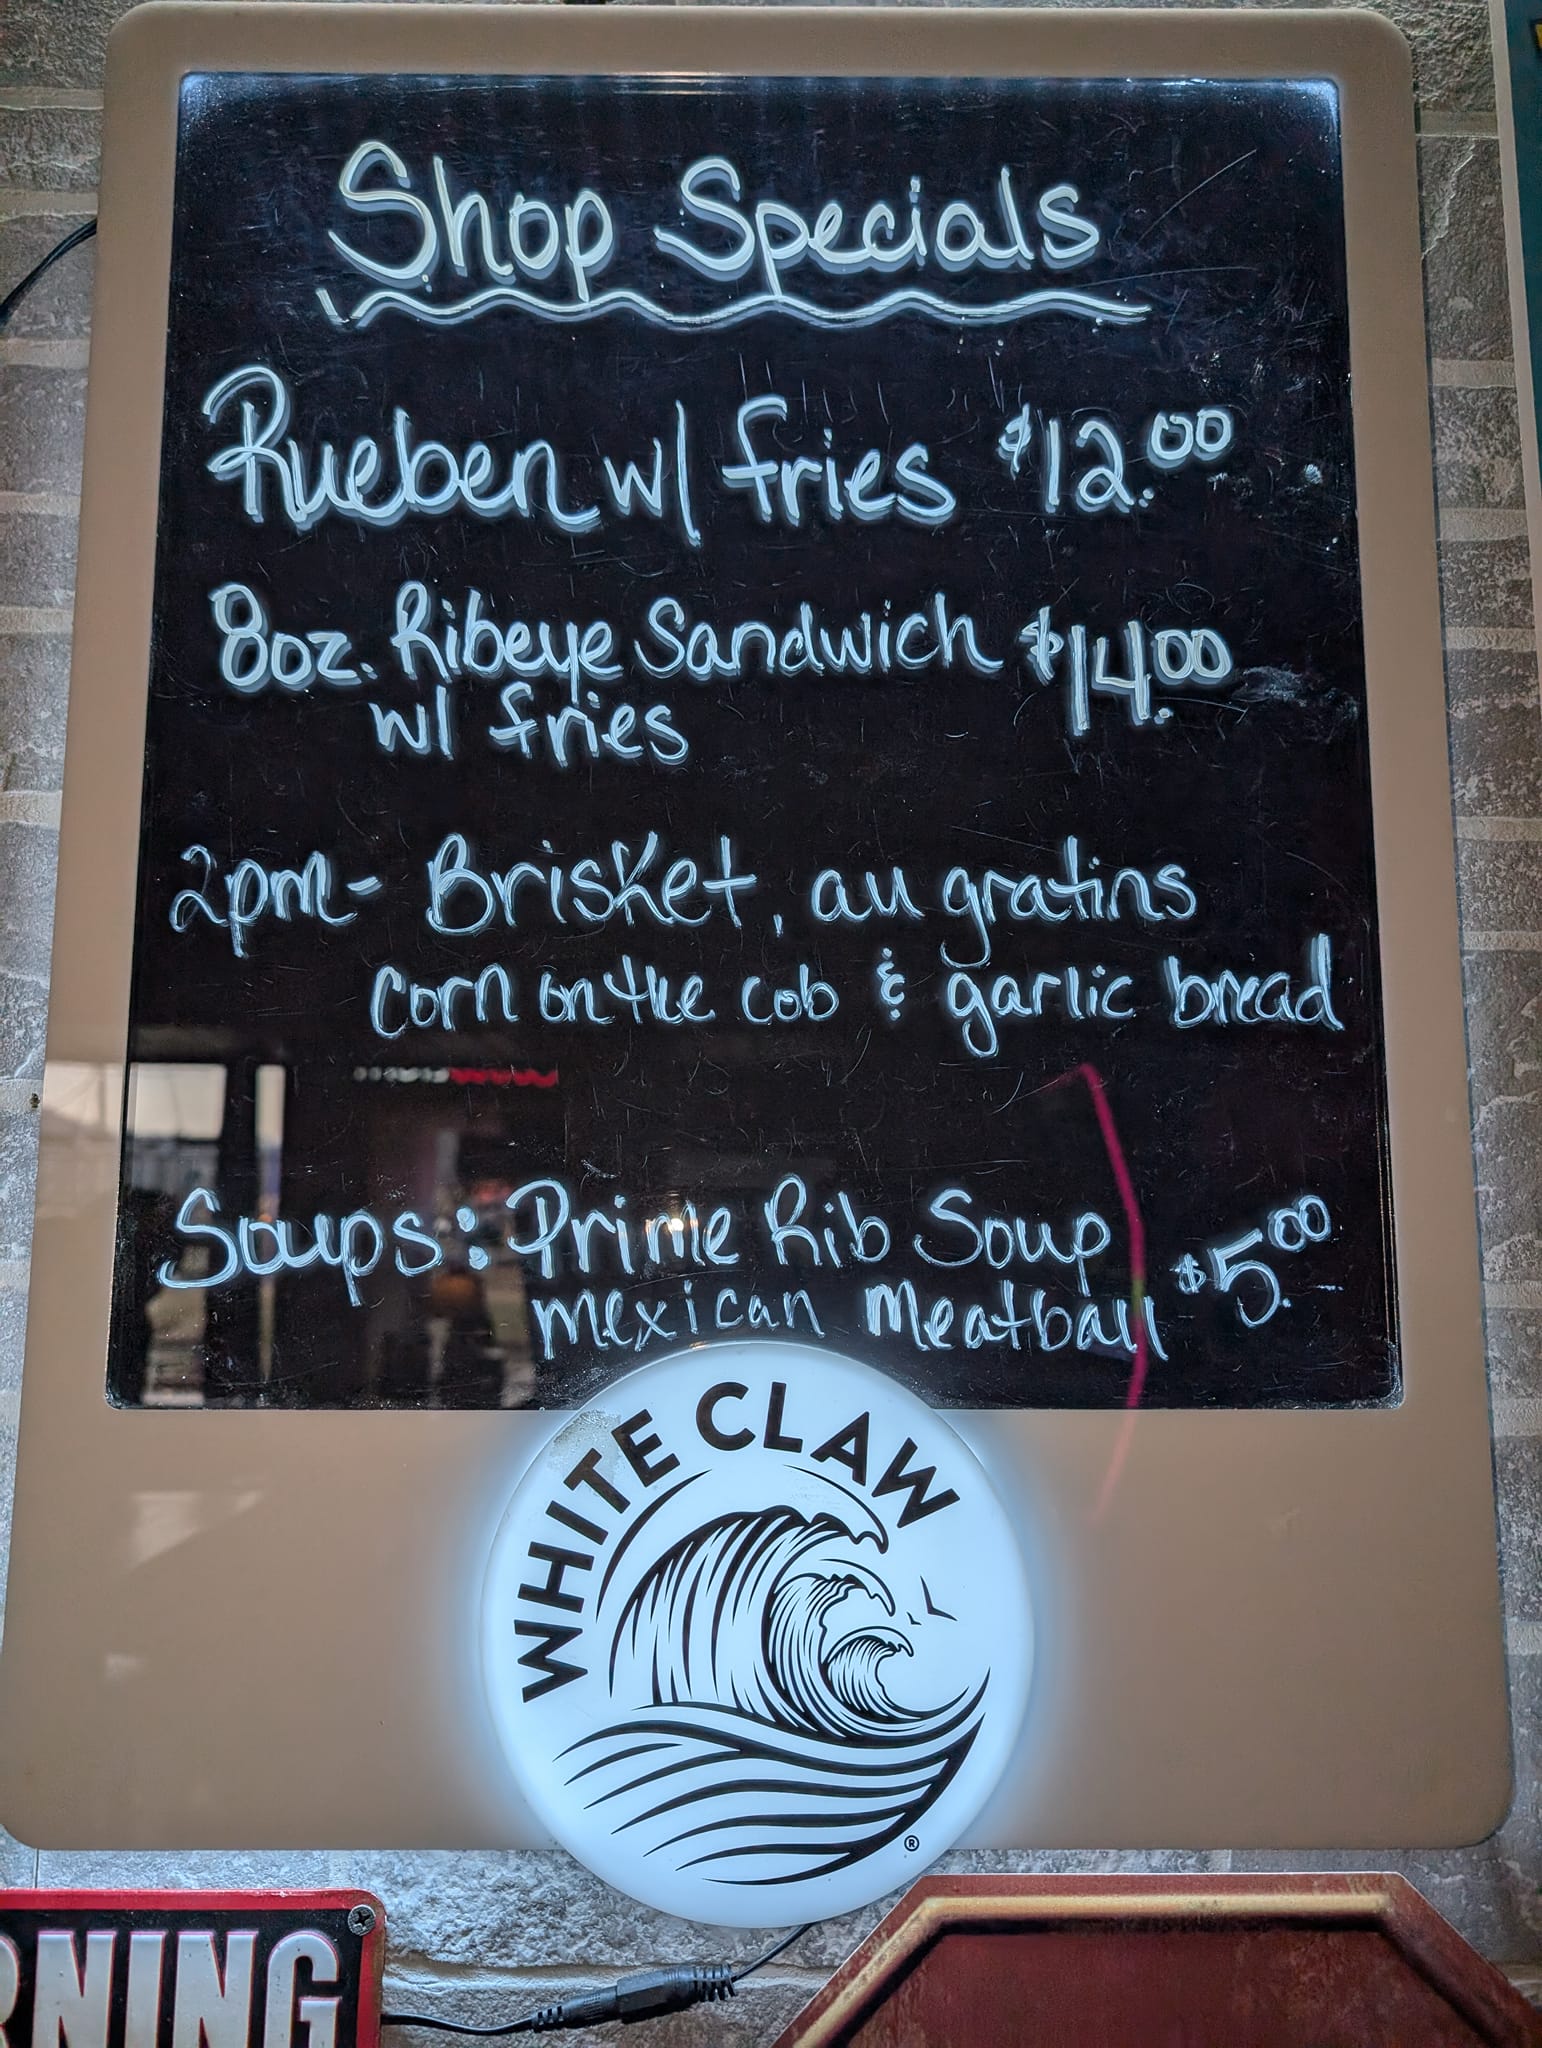 Shop Specials
Rueben w/ fries $12.00
8oz. Ribeye Sandwich $14.00
w/ fries
2pm- Brisket, au gratins
corn on the cob & garlic bread
Soups: Prime Rib Soup
mexican meatball $5.00
WHITE CLAW
®
RNING